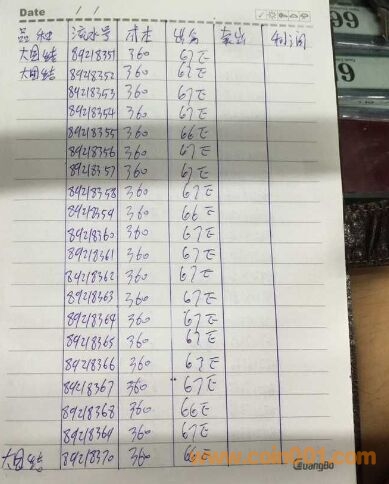 Date / /
品种 流水号 成本 出分 卖出 利润
大团结 84218351 360 67E
大团结 84218352 360 67E
84218353 360 67E
84218354 360 67E
84218355 360 66E
84218356 360 67E
84218357 360 67E
84218358 360 67E
84218359 360 66E
84218360 360 67E
84218361 360 67E
84218362 360 67E
84218363 360 67E
84218364 360 67E
84218365 360 67E
84218366 360 67E
84218367 360 67E
84218368 360 66E
84218369 360 67E
大团结 84218370 360 66E
www.coin001.com
GuangBo